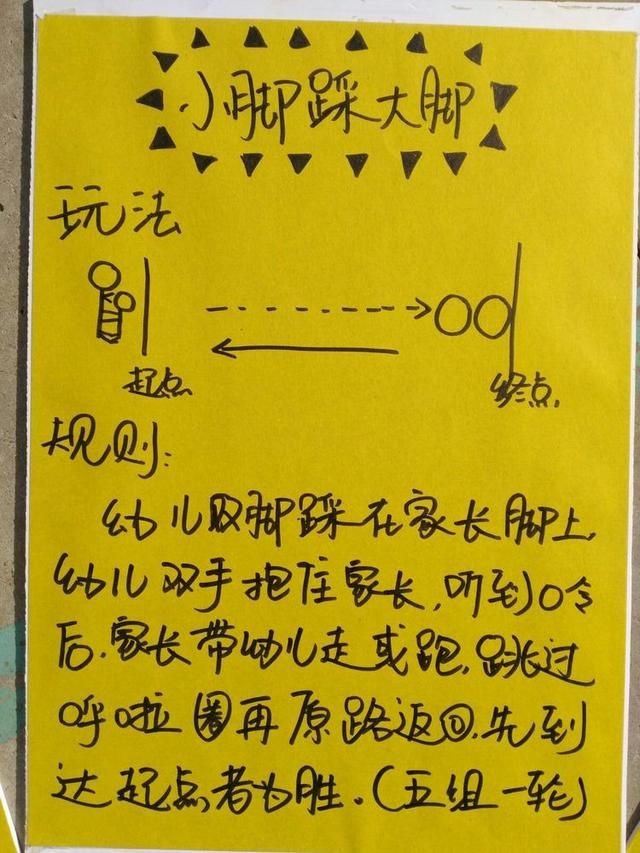 小脚踩大脚
玩法
起点
终点.
规则:
幼儿双脚踩在家长脚上,
幼儿双手抱住家长,听到口令
后.家长带幼儿走或跑,跳过
呼啦圈再原路返回.先到
达起点者为胜.(五组一轮)